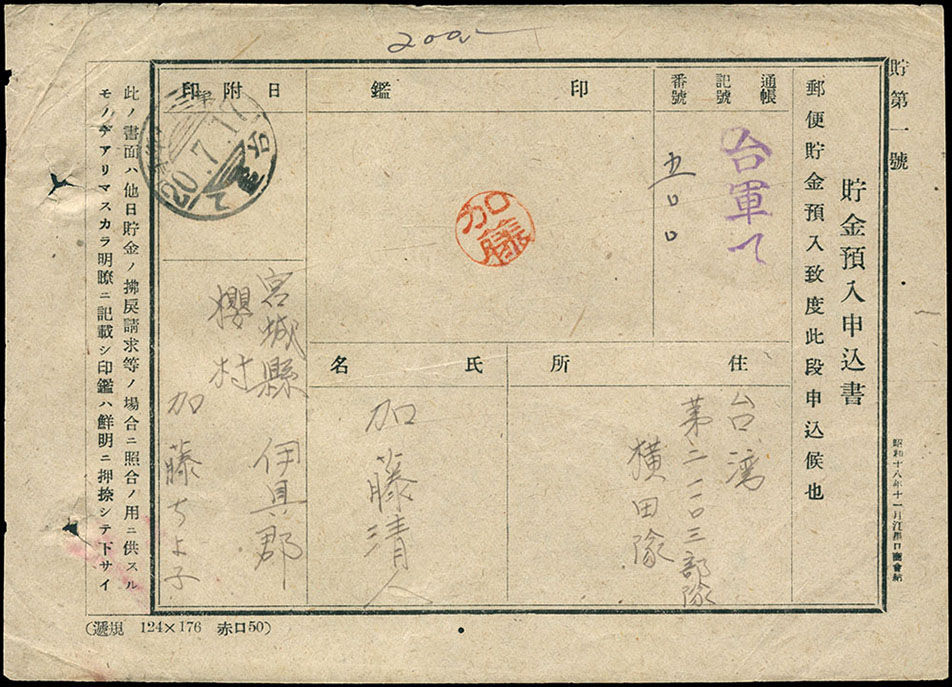 200-
貯第一號
貯金預入申込書
郵便貯金預入致度此段申込候也
昭和十八年十一月江川口商會納
通帳
記號
番號
台軍て
五〇〇
印鑑
加藤
日附印
20.7.17
住所
台湾
第二一〇三部隊
横田隊
氏名
加藤清人
宮城縣 伊具郡
櫻村
加藤ちよ子
此ノ書面ハ他日貯金ノ拂戻請求等ノ場合ニ照合ノ用ニ供スル
モノデアリマスカラ明瞭ニ記載シ印鑑ハ鮮明ニ押捺シテ下サイ
(遞規 124×176 赤口50)